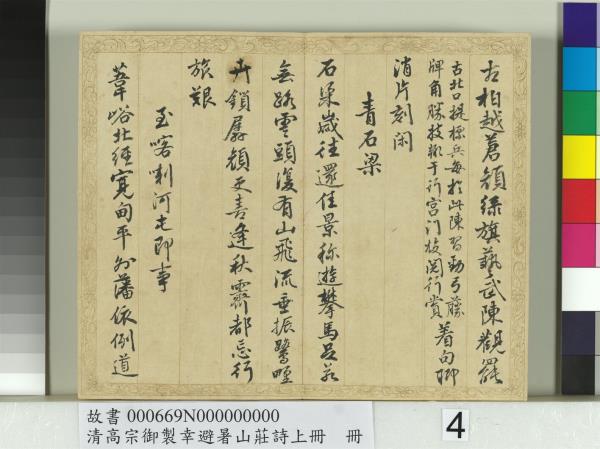 古柏越蒼顏綠旗藝武陳觀罷
古北口提標兵每於此陳習勁弓藤
牌角勝技輒于行宮門校閱行賞
着句聊
消片刻閑
青石梁
石梁歲往還佳景称遊攀馬足若
無路雲頭復有山飛流垂振鷺
卉鎖孱顏更喜逢秋霽都忘行
旅艱
至喀喇河屯即事
葦峪北經寬甸平外藩依例道
故書 000669N000000000
清高宗御製幸避暑山莊詩上冊 冊
4